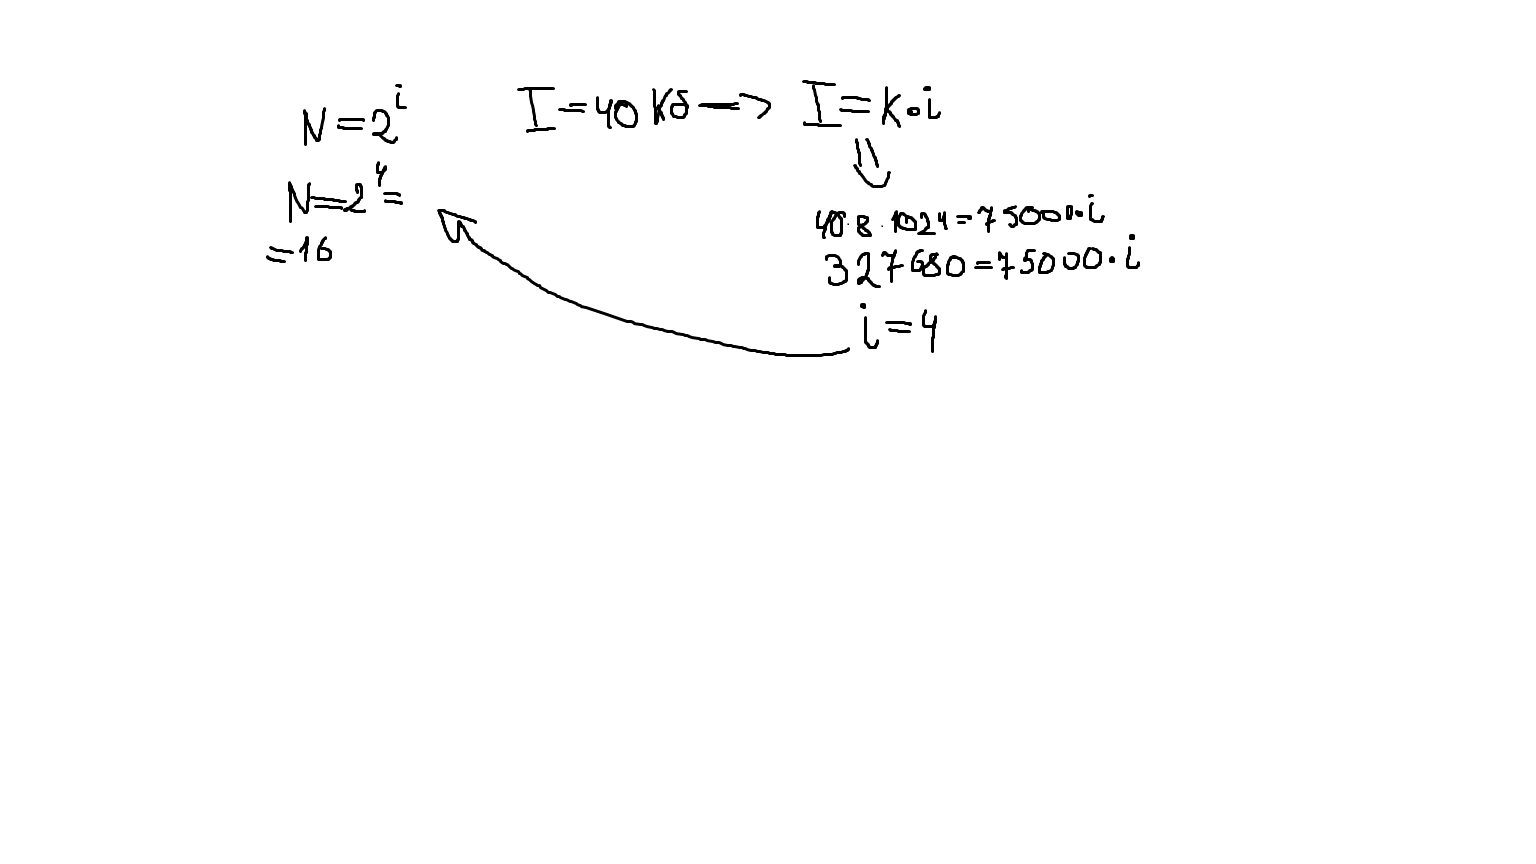 N=2^i
N=2^4=
=16
I=40 Кб → I=k·i
40·8·1024=75000·i
327680=75000·i
i=4